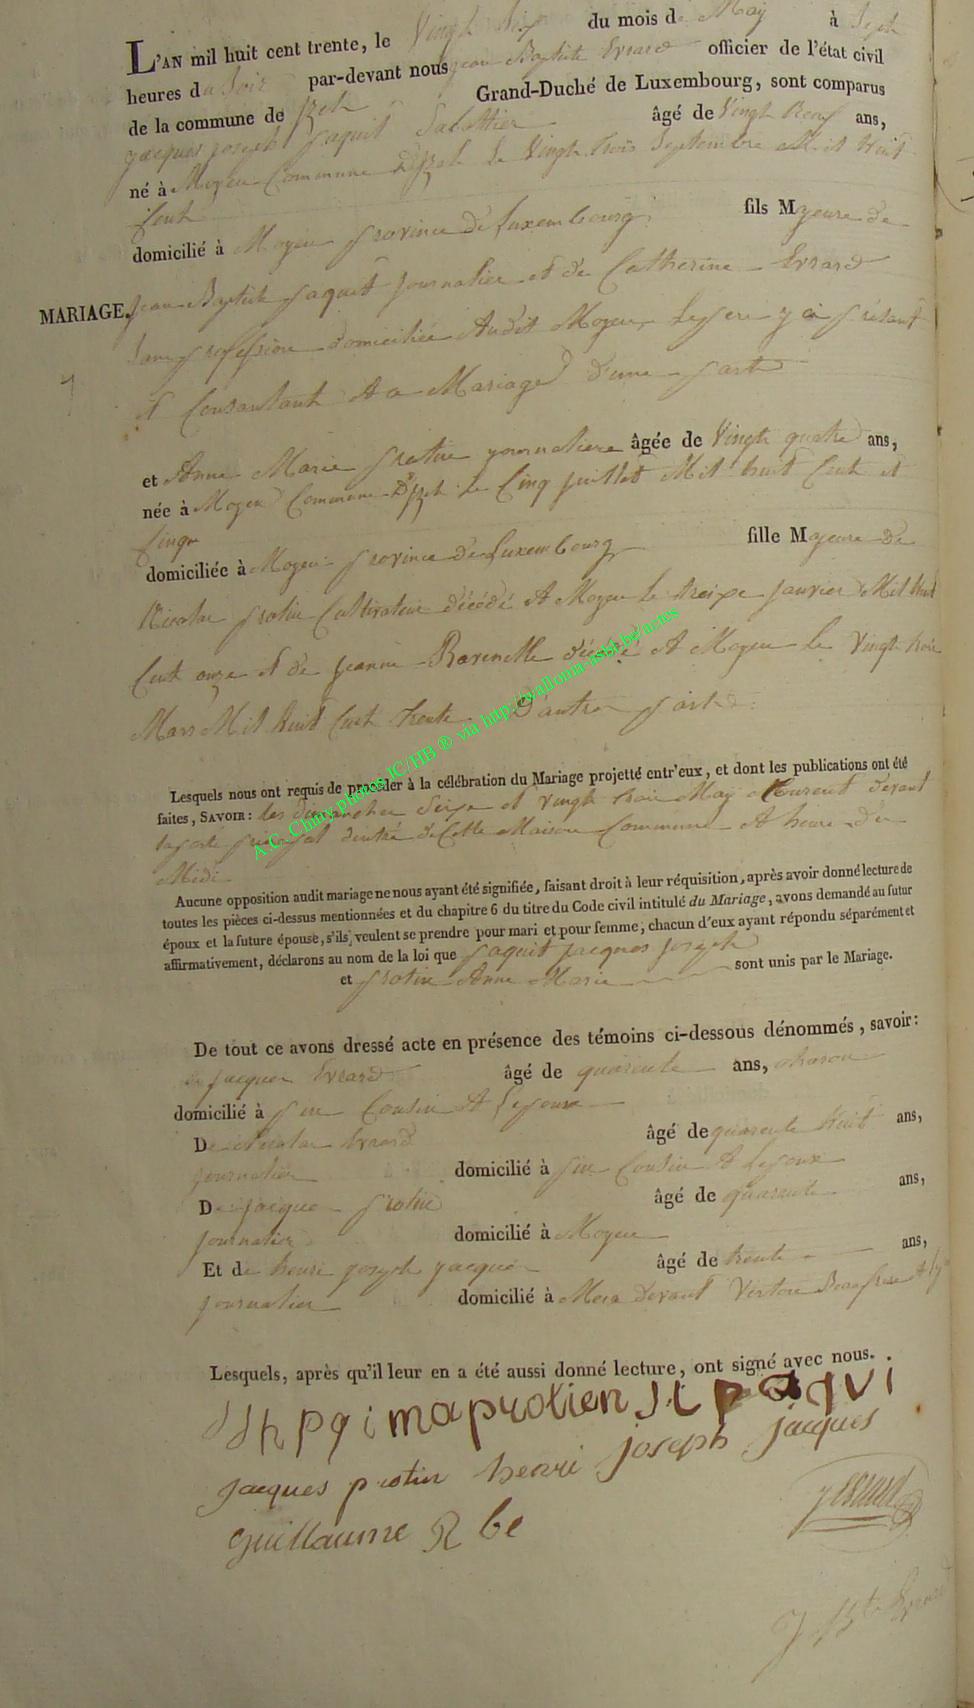 L'AN mil huit cent trente, le Vingt Six du mois de May à Sept
heures du Soir par-devant nous Jean Baptiste Evrard officier de l'état civil
de la commune de Izel Grand-Duché de Luxembourg, sont comparus
Jacques joseph paquit âgé de Vingt Neuf ans,
né à Moyen Commune D'Izel le Vingt trois Septembre Mil huit
Cent
domicilié à Moyen province de Luxembourg fils Majeure de
Jean Baptiste paquit journalier et de Catherine Evrard
MARIAGE.
Sans profession domiciliée Audit Moyen Le pere y a présent
et Consantant A a Mariage D'une part
et Anne Marie protin journaliere âgée de Vingt quatre ans,
née à Moyen Commune D'Izel Le Cinq juillet Mil huit Cent et
Cinq
domiciliée à Moyen province de Luxembourg fille Majeure de
Nicolas protin Cultivateur décédé A Moyen le treize janvier Mil huit
Cent onze et de jeanne Ravenelle décédé A Moyen le Vingt trois
Mars Mil huit Cent trente D'autre part
Lesquels nous ont requis de procéder à la célébration du Mariage projetté entr'eux, et dont les publications ont été
faites, SAVOIR: les dimanches Seize et Vingt trois May Courent Devant
la porte principal d'entré de Cette Maison Commune A heure de
Midi
Aucune opposition audit mariage ne nous ayant été signifiée, faisant droit à leur réquisition, après avoir donné lecture de
toutes les pièces ci-dessus mentionnées et du chapitre 6 du titre du Code civil intitulé du Mariage, avons demandé au futur
époux et la future épouse, s'ils veulent se prendre pour mari et pour femme, chacun d'eux ayant répondu séparément et
affirmativement, déclarons au nom de la loi que paquit jacques joseph
et protin Anne Marie sont unis par le Mariage.
De tout ce avons dressé acte en présence des témoins ci-dessous dénommés, savoir:
de jacques Evrard âgé de quarente ans, charon
domicilié à pin Cousin A Lepoux
De Nicolas Evrard âgé de quarente huit ans,
journalier domicilié à pin Cousin A Lepoux
De jacque protin âgé de quarente ans,
journalier domicilié à Moyen
Et de henri joseph jacques âgé de trente ans,
journalier domicilié à Meix Devant Virton Beaufrere
Lesquels, après qu'il leur en a été aussi donné lecture, ont signé avec nous.
maprotien paqui
jacques protin henri joseph jacques
guillaume jevrard
J Bte Evrard
A.C. Chiny photos JC/HB ® via http://wallonia-asbl.be/actes